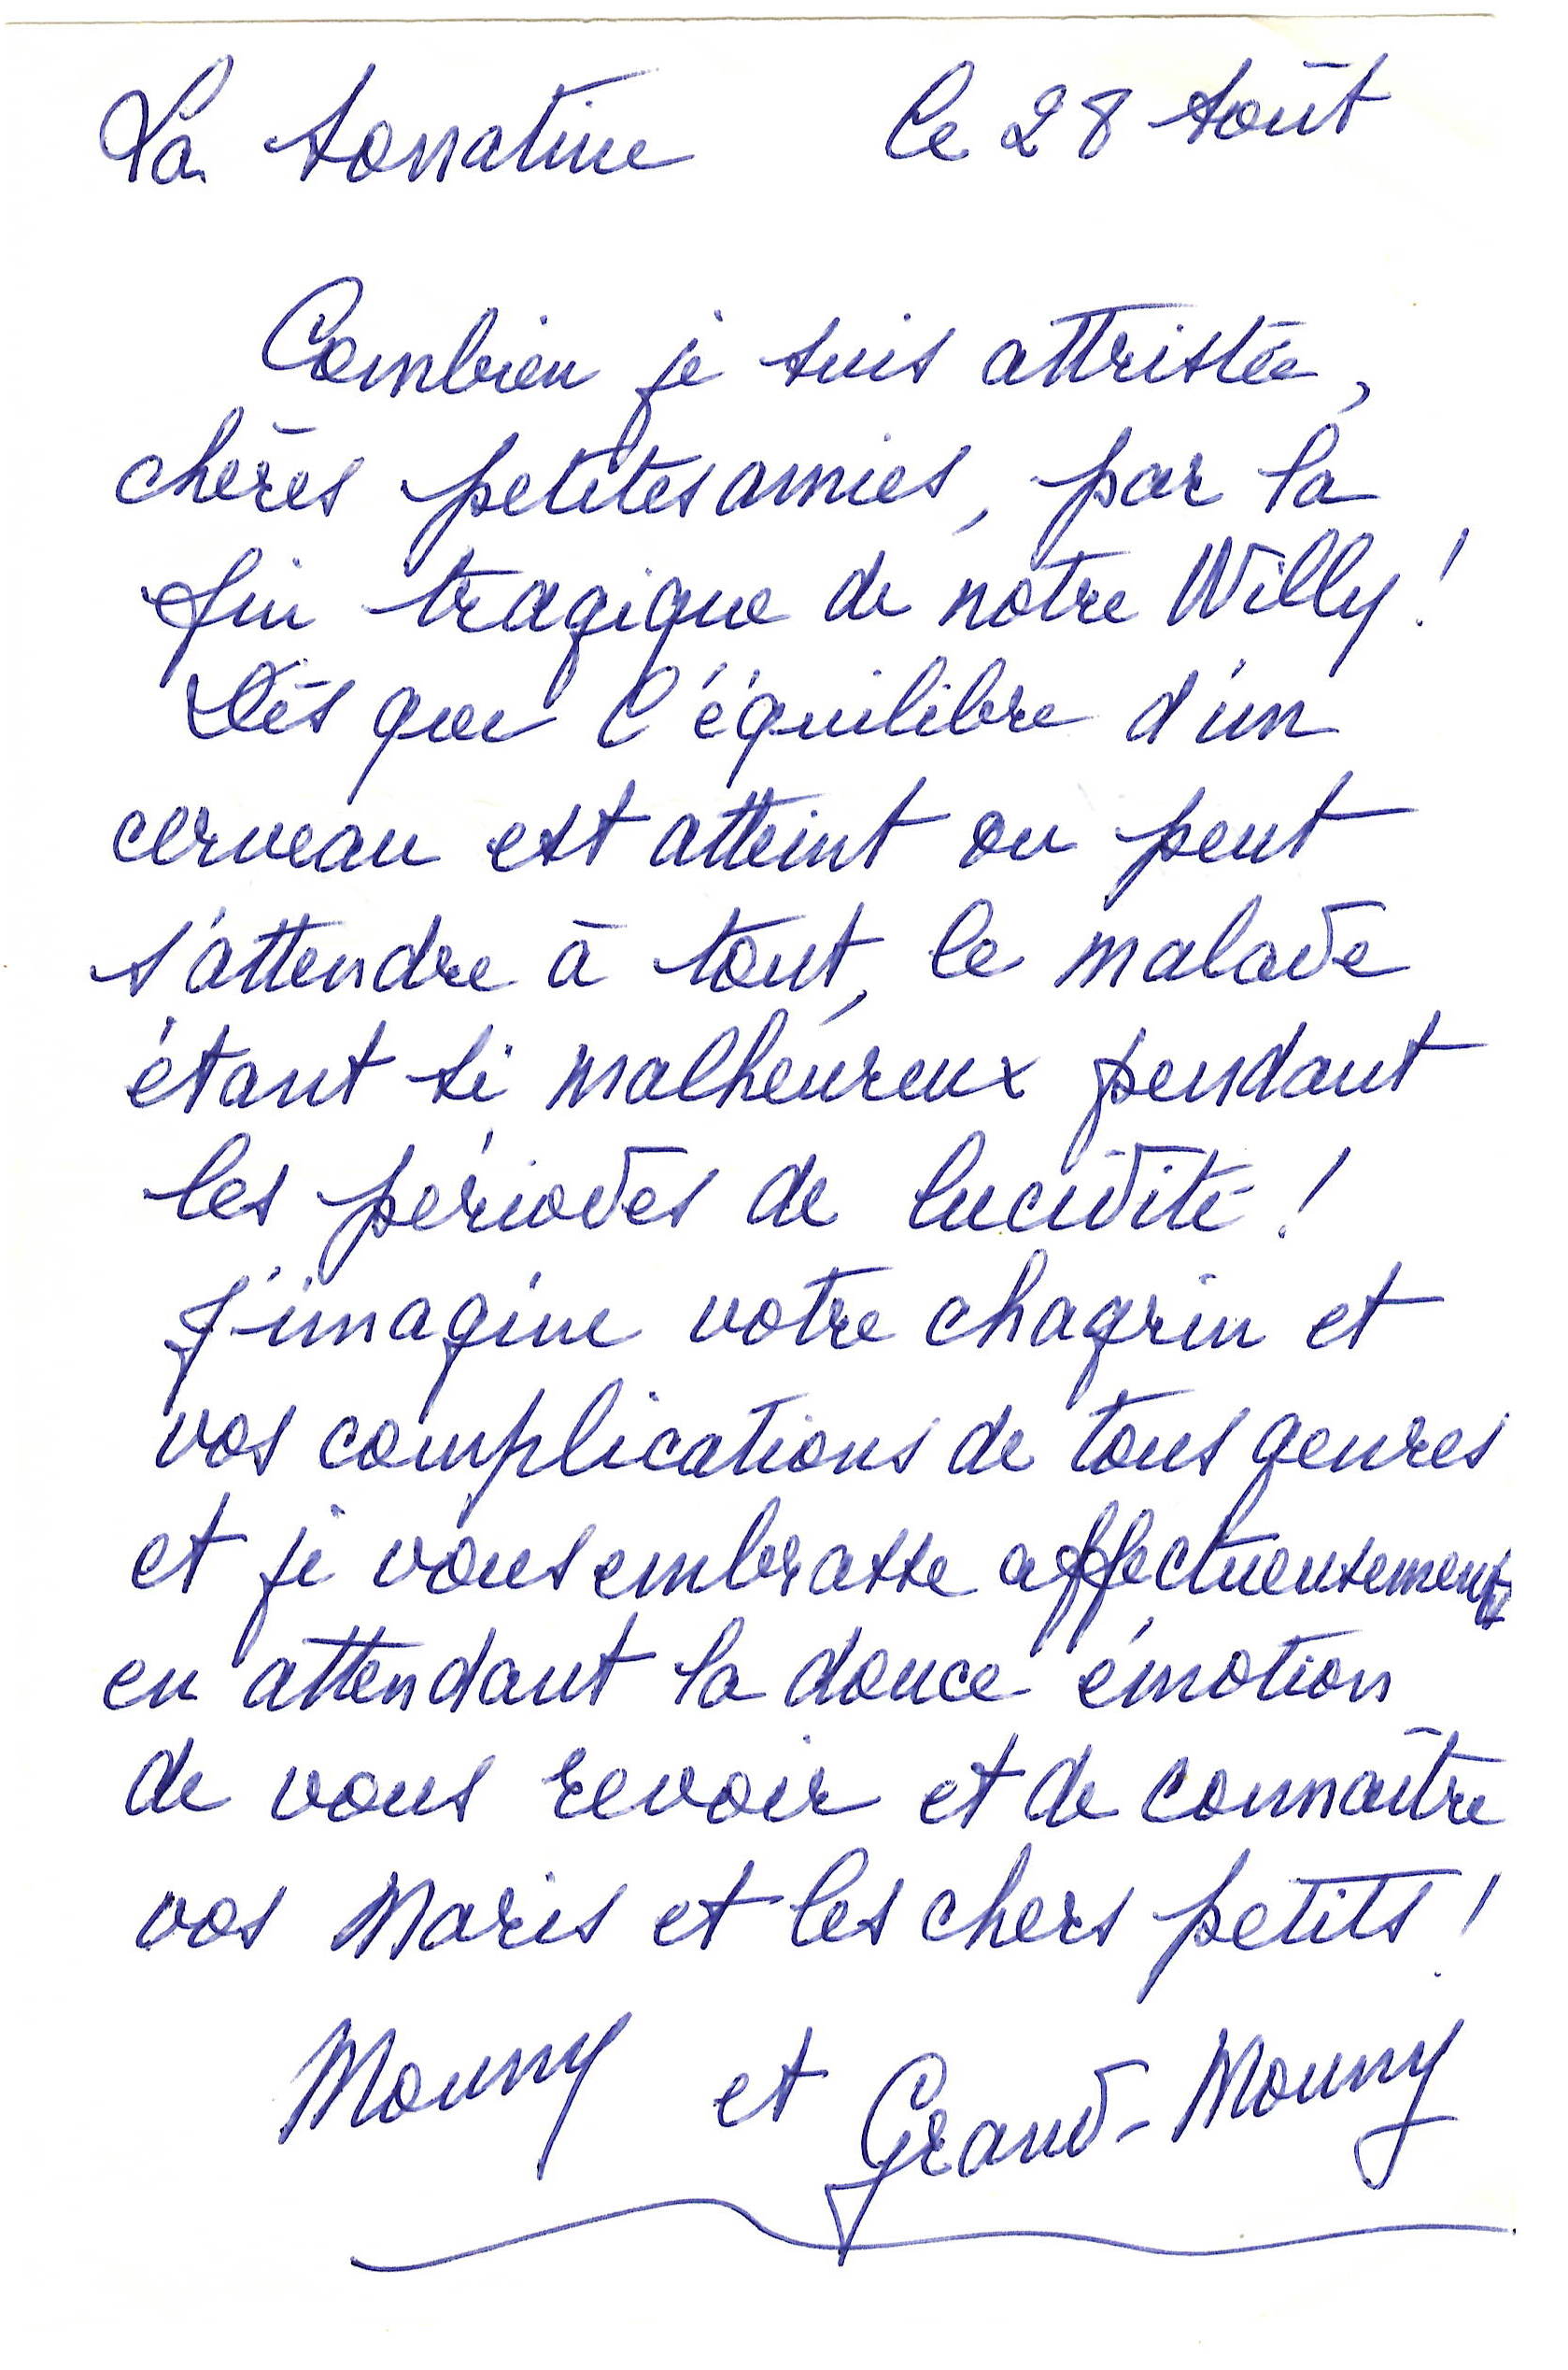 La Sonatine le 28 Août
Combien je suis attristée,
chères petites amies, par la
fin tragique de notre Willy !
Dès que l'équilibre d'un
cerveau est atteint on peut
s'attendre à tout, le malade
étant si malheureux pendant
les périodes de lucidité !
J'imagine votre chagrin et
vos complications de tous genres
et je vous embrasse affectueusement
en attendant la douce émotion
de vous revoir et de connaître
vos Maris et les chers petits !
Mouny et Grand-Mouny